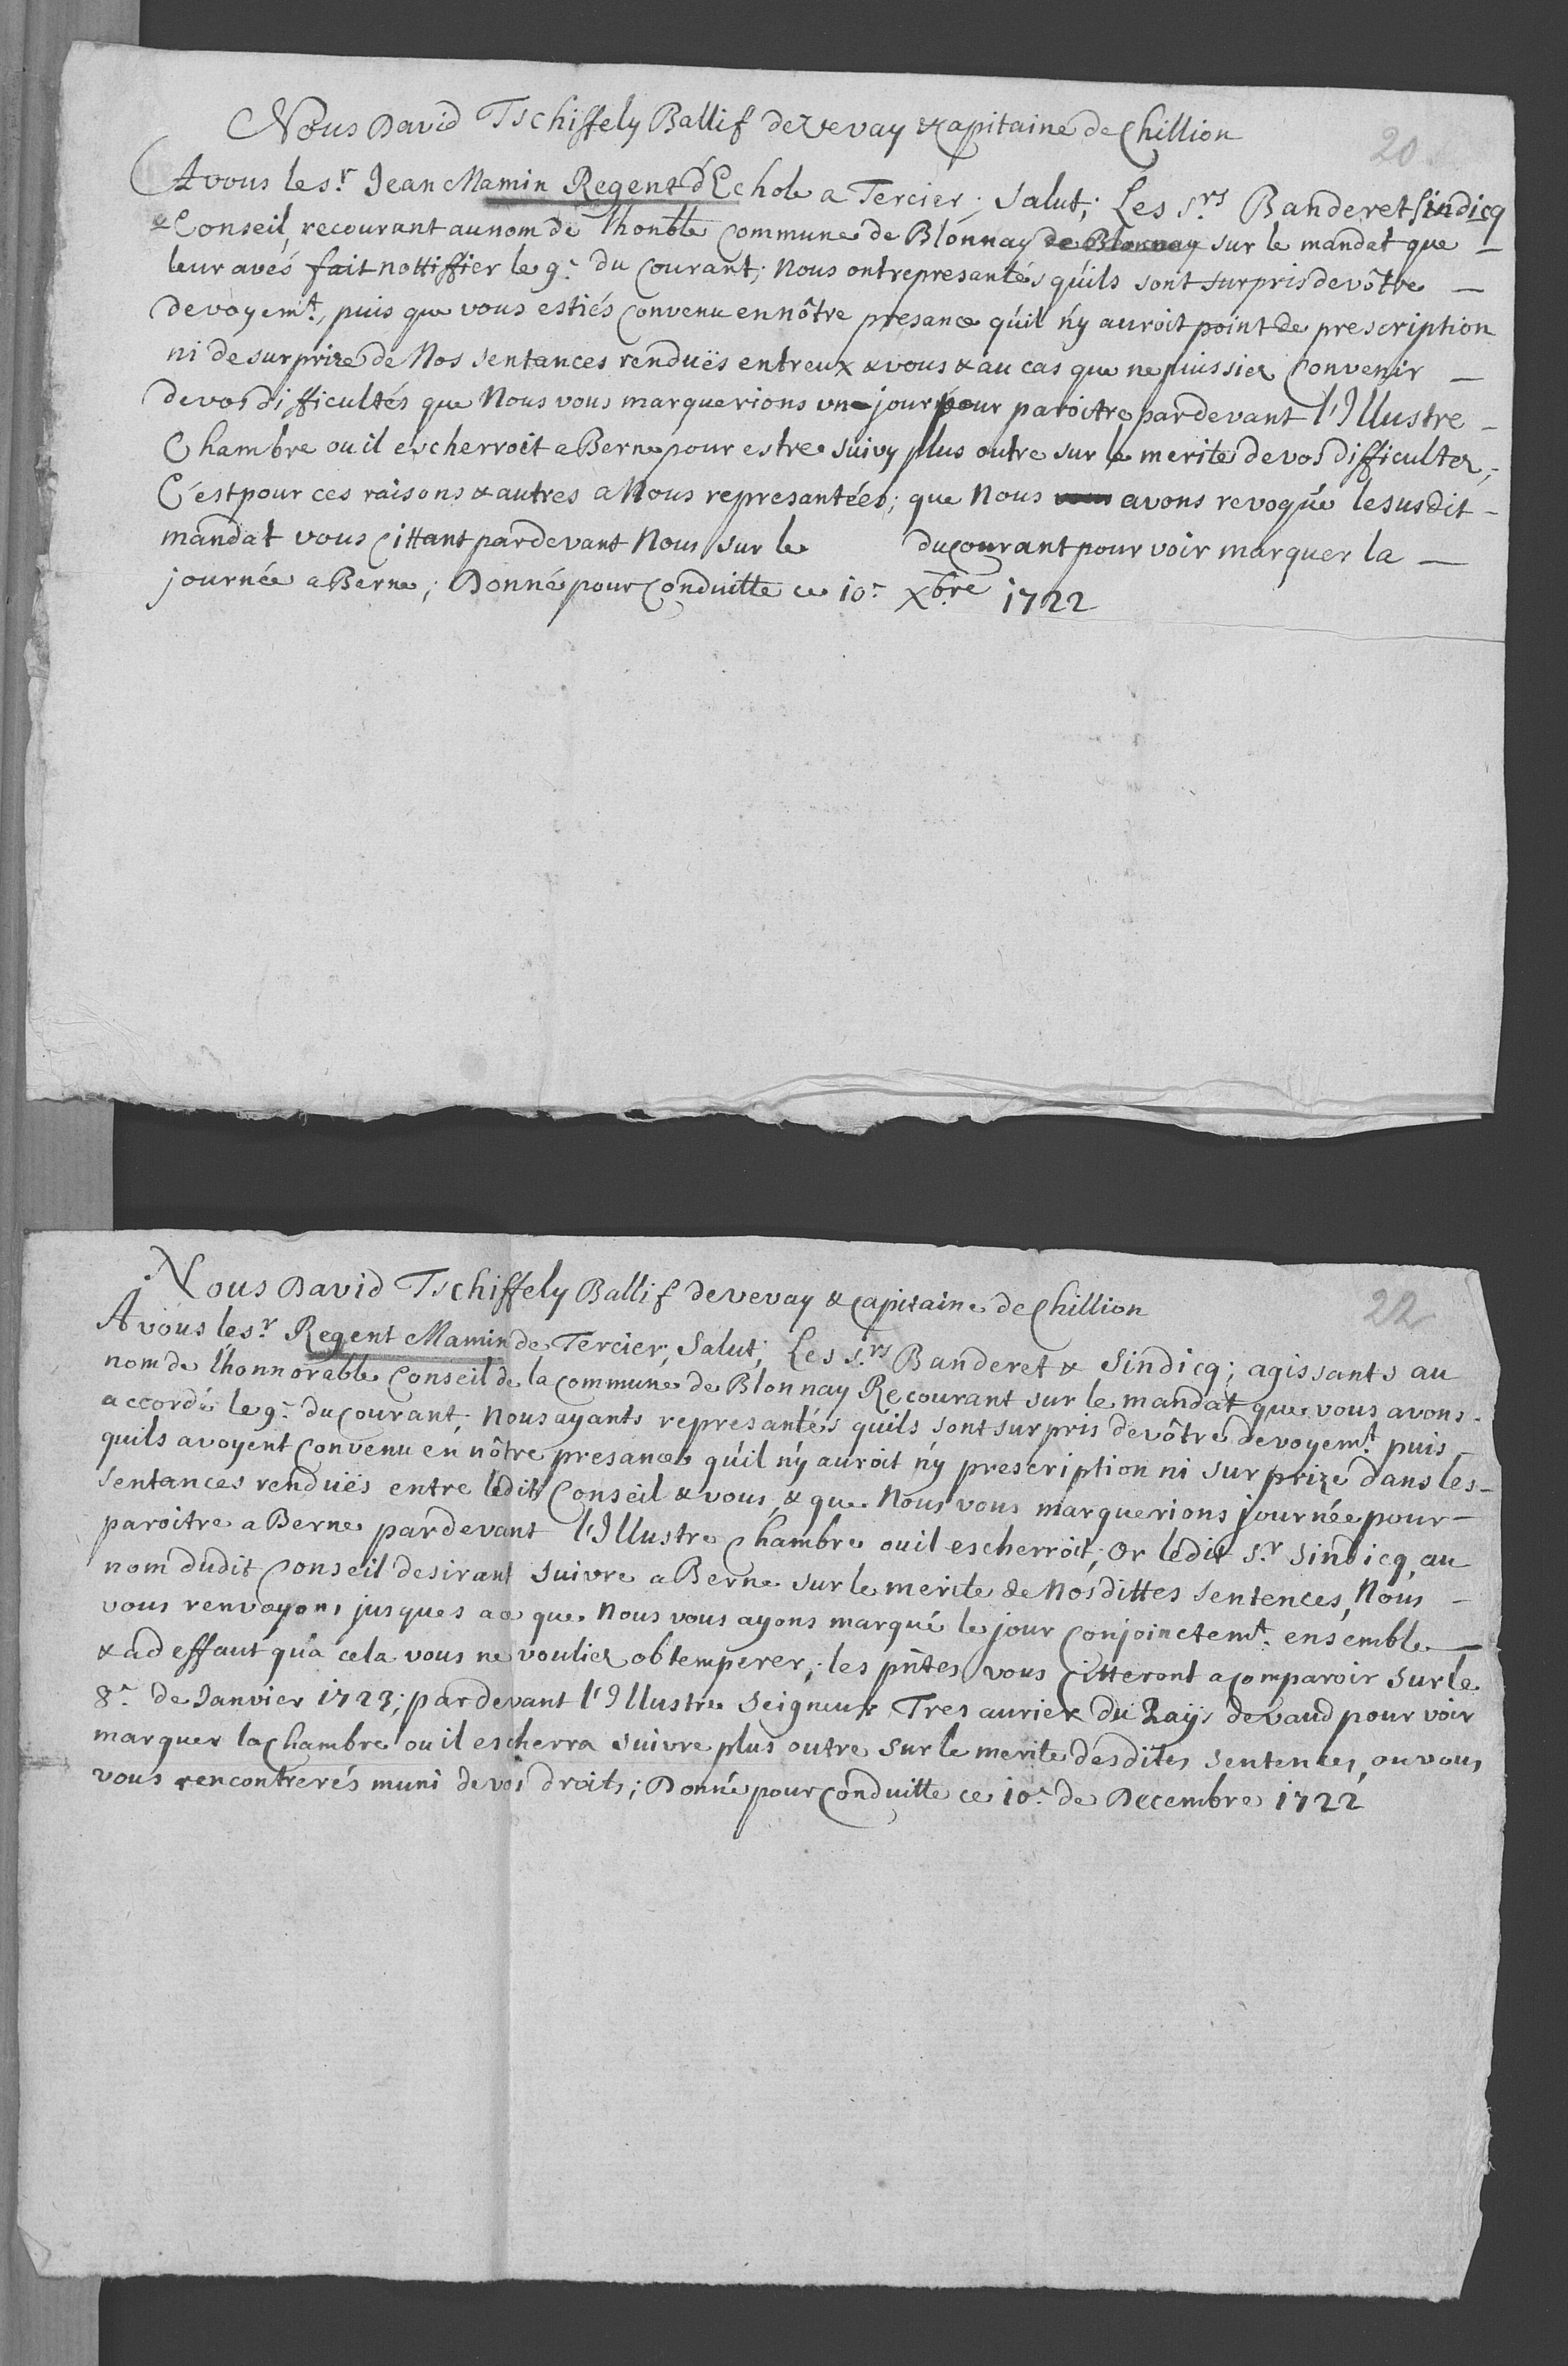 Nous David Tschiffely Ballif de Vevay & Capitaine de Chillion
20
A vous le s.r Jean Mamin Regent d'Echole a Tercier; Salut; Les s.rs Banderet sindicq
& Conseil, recourant au nom de lhonble Commune de Blonnay de Blonnay sur le mandat que –
leur avés fait nottiffier le 9.e du Courant; Nous ont represantés qu'ils sont surpris de vôtre –
devoyem.t, puis que vous estiés Convenu en nôtre presance qu'il n'y auroit point de prescription
ni de surprize de Nos sentances renduës entreux & vous & au cas que ne puissiez Convenir –
de vos difficultés que Nous vous marquerions un jour pour paroitre par devant l'Illustre –
Chambre ou il escherroit a Berne pour estre suivy plus outre sur le merite de vos difficultez;
C'est pour ces raisons & autres a Nous represantées; que Nous vous avons revoqué le susdit –
mandat vous Cittant par devant Nous sur le du Courant pour voir marquer la –
journée a Berne; Donné pour Conduitte ce 10.e Xbre 1722
Nous David Tschiffely Ballif de Vevay & Capitaine de Chillion
22
A vous le s.r Regent Mamin de Tercier, Salut; Les s.rs Banderet & Sindicq; agissants au
nom de l'honnorable Conseil de la Commune de Blonnay Recourant sur le mandat que vous avons
accordé le 9.e du Courant; Nous ayants represantés quils sont surpris de vôtre devoyem.t puis –
quils avoyent Convenu en nôtre presance qu'il n'y auroit n'y prescription ni surprize dans les –
sentances renduës entre ledit Conseil & vous, & que Nous vous marquerions journée pour –
paroitre a Berne par devant l'Illustre Chambre ou il escherroit; Or ledit s.r Sindicq, au
nom dudit Conseil desirant suivre a Berne sur le merite de Nosdittes sentences, Nous –
vous renvoyons jusques a ce que Nous vous ayons marqué le jour Conjoinctem.t ensemble –
& a deffaut qu'a cela vous ne vouliez obtemperer; les pntes vous Citteront a Comparoir sur le
8.e de Janvier 1723; par devant l'Illustre Seigneur Tresaurier du Païs de vaud pour voir
marquer la Chambre ou il escherra suivre plus outre sur le merite desdites sentences, ou vous
vous rencontrerés muni de vos droits; Donné pour Conduitte ce 10.e de Decembre 1722